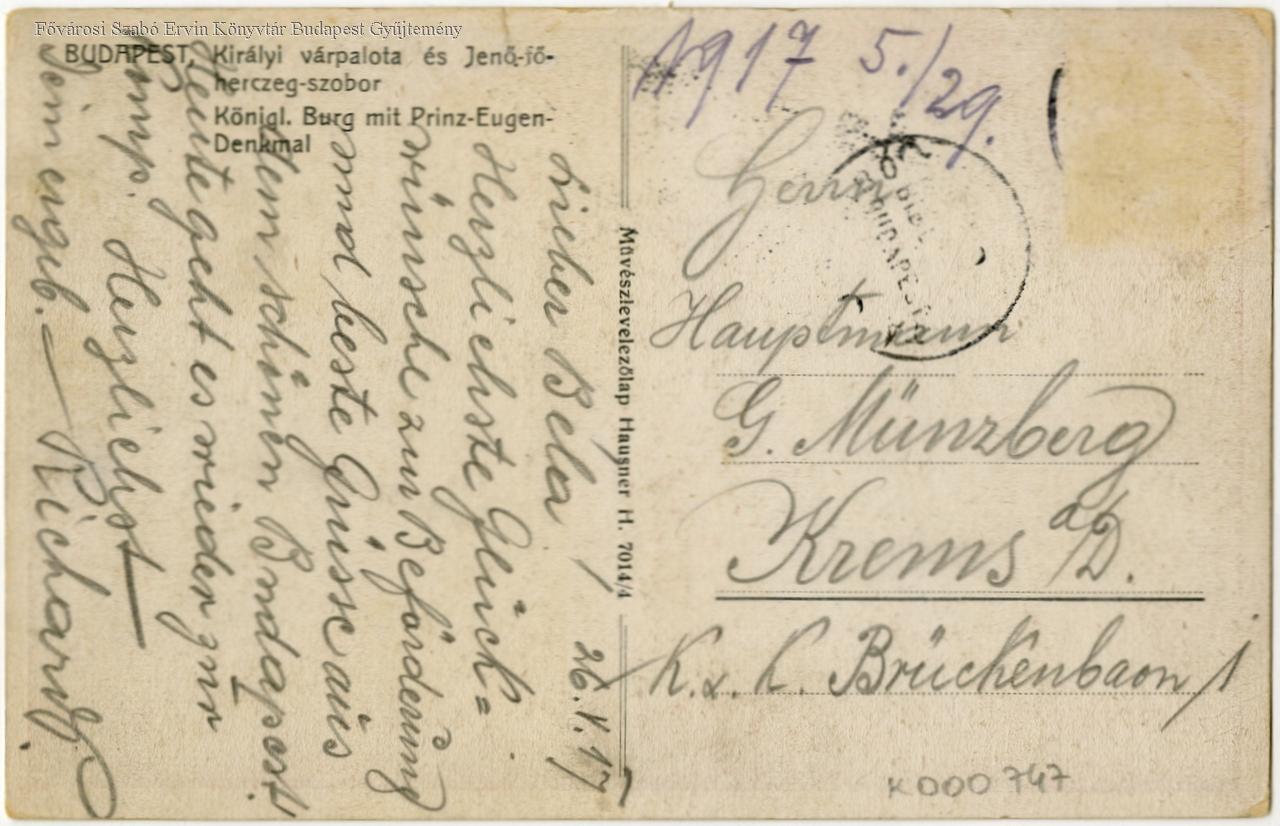 Fővárosi Szabó Ervin Könyvtár Budapest Gyűjtemény
BUDAPEST, Királyi várpalota és Jenő-fő-
herczeg-szobor
Königl. Burg mit Prinz-Eugen-
Denkmal
26.V.17
Lieber Bela!
Herzlichste Glück=
wünsche zur Beförderung
und beste Grüsse aus
dem schönen Budapest
Heute geht es wieder zur
Komp. Herzlichst
Dein ergeb. Richard
Művészlevelezőlap Hausner H. 7014/4
1917 5./29.
BUDAPEST
Herrn
Hauptmann
G. Münzberg
Krems a/D.
K. u. K. Brückenbaon 1
K000747